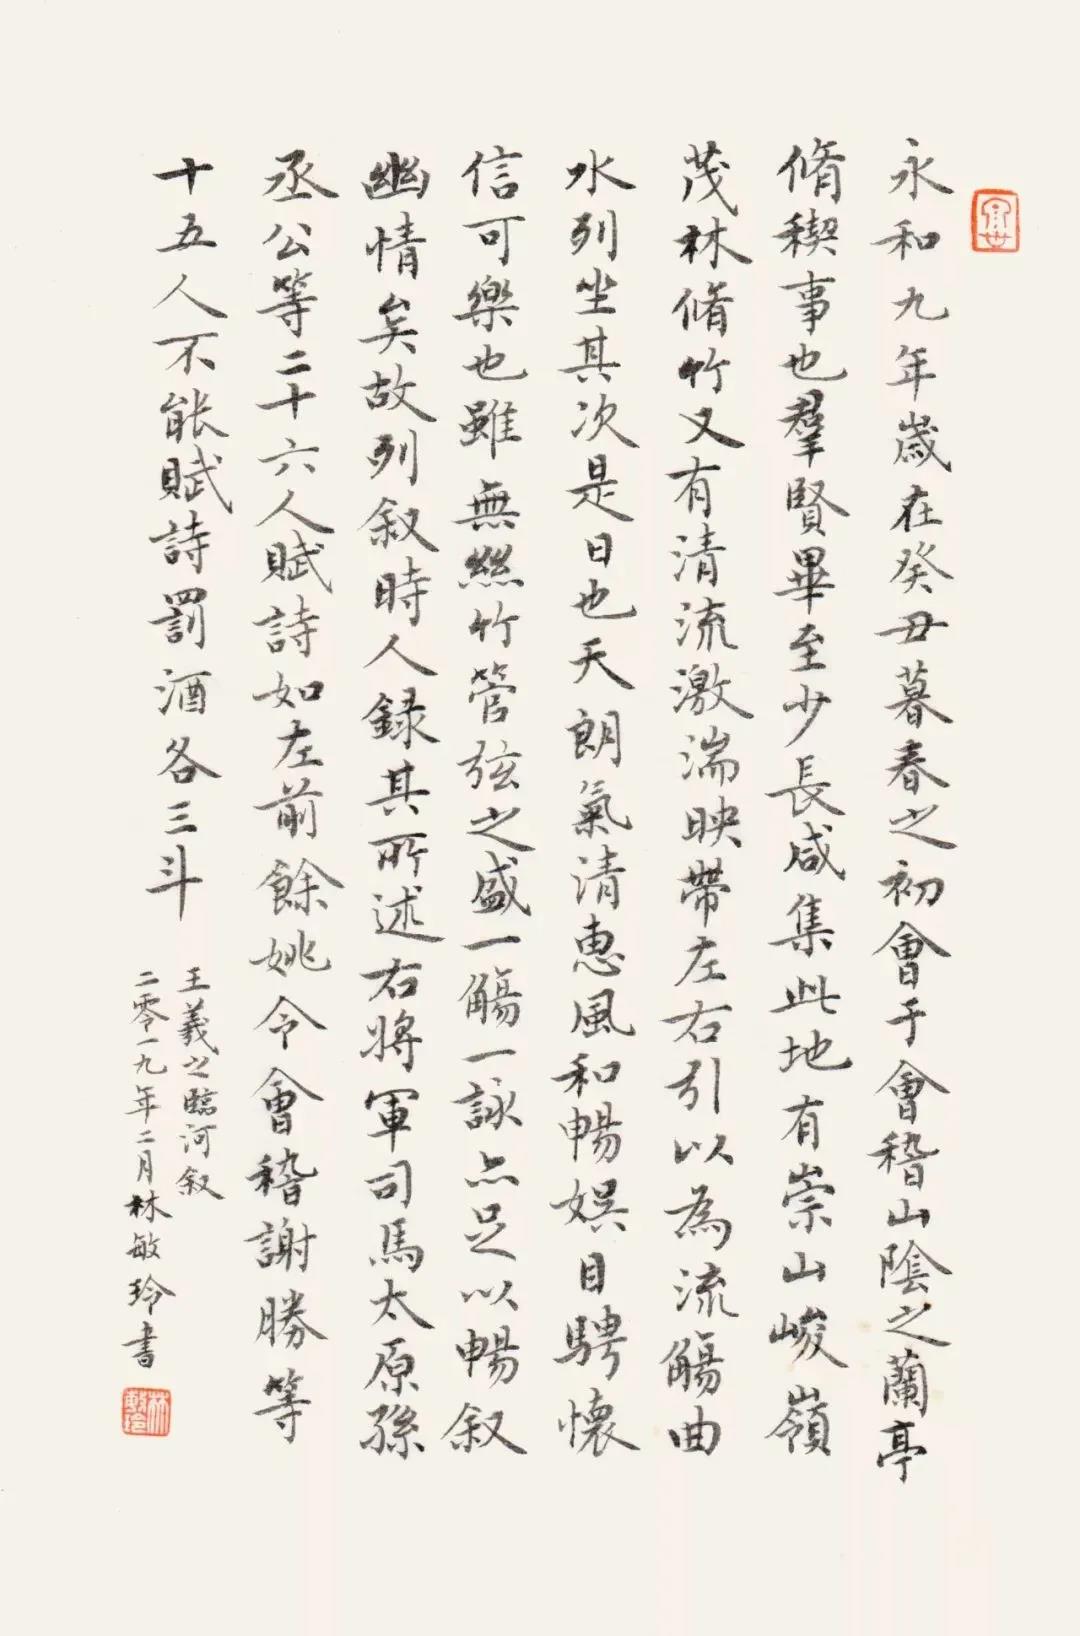 永和九年歲在癸丑暮春之初會于會稽山陰之蘭亭
脩稧事也羣賢畢至少長咸集此地有崇山峻嶺
茂林脩竹又有清流激湍映帶左右引以為流觴曲
水列坐其次是日也天朗氣清惠風和暢娯目騁懷
信可樂也雖無絲竹管弦之盛一觴一詠亦足以暢叙
幽情矣故列叙時人録其所述右將軍司馬太原孫
丞公等二十六人賦詩如左前餘姚令會稽謝勝等
十五人不能賦詩罰酒各三斗
王羲之臨河叙
二零一九年二月林敏玲書
林敏玲